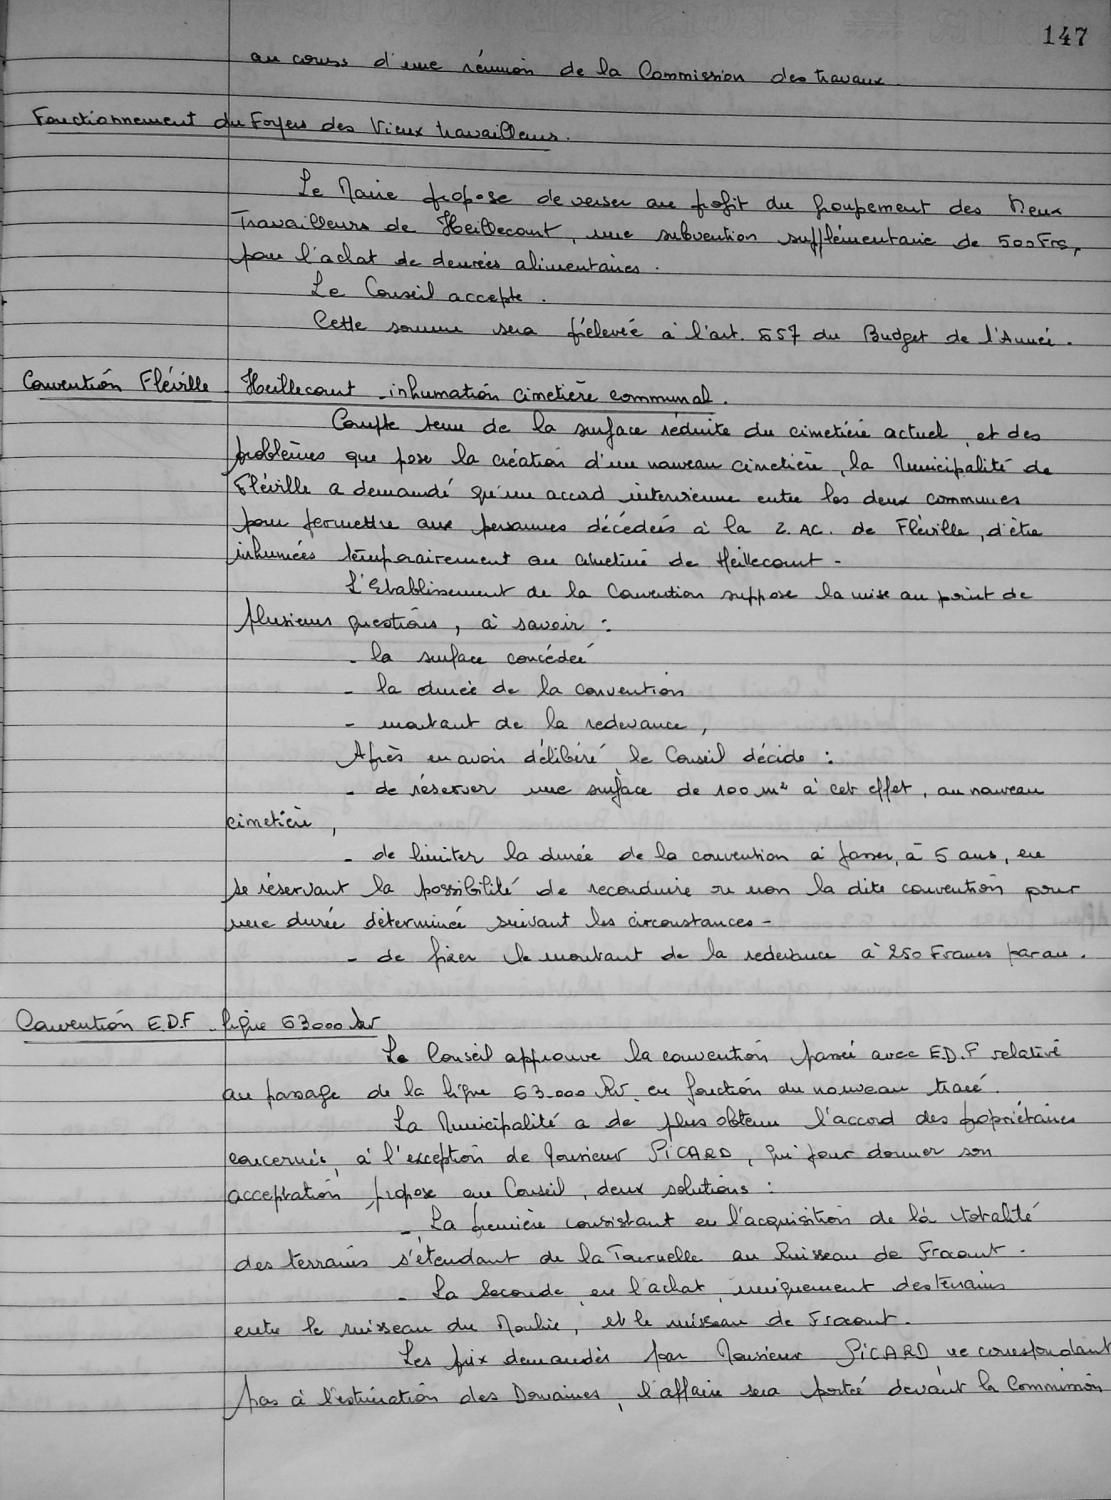 147
au cours d'une réunion de la Commission des travaux
Fonctionnement du Foyer des Vieux travailleurs.
Le Maire propose de verser au profit du groupement des Vieux
Travailleurs de Heillecourt, une subvention supplémentaire de 500 Frs,
pour l'achat de denrées alimentaires.
Le Conseil accepte.
Cette somme sera prélevée à l'art. 657 du Budget de l'Année.
Convention Fléville Heillecourt - inhumation cimetière communal.
Compte tenu de la surface réduite du cimetière actuel, et des
problèmes que pose la création d'un nouveau cimetière, la Municipalité de
Fléville a demandé qu'un accord intervienne entre les deux communes
pour permettre aux personnes décédées à la Z.AC. de Fléville, d'être
inhumées temporairement au cimetière de Heillecourt -
L'Etablissement de la Convention suppose la mise au point de
plusieurs questions, à savoir :
- la surface concédée
- la durée de la convention
- montant de la redevance,
Après en avoir délibéré le Conseil décide :
- de réserver une surface de 100 m² à cet effet, au nouveau
cimetière,
- de limiter la durée de la convention à passer, à 5 ans, en
se réservant la possibilité de reconduire ou non la dite convention pour
une durée déterminée suivant les circonstances -
- de fixer le montant de la redevance à 250 Francs par an.
Convention E.D.F - ligne 63000 kv
Le Conseil approuve la convention passée avec E.D.F relative
au passage de la ligne 63.000 KV. en fonction du nouveau tracé.
La Municipalité a de plus obtenu l'accord des propriétaires
concernés, à l'exception de Monsieur PICARD, qui pour donner son
acceptation, propose au Conseil, deux solutions :
- La première consistant en l'acquisition de la totalité
des terrains s'étendant de la Tournelle au Ruisseau de Frocourt.
- La Seconde, en l'achat uniquement des terrains
entre le ruisseau du Moulin, et le ruisseau de Frocourt.
Les prix demandés par Monsieur PICARD ne correspondant
pas à l'estimation des Domaines, l'affaire sera portée devant la Commission